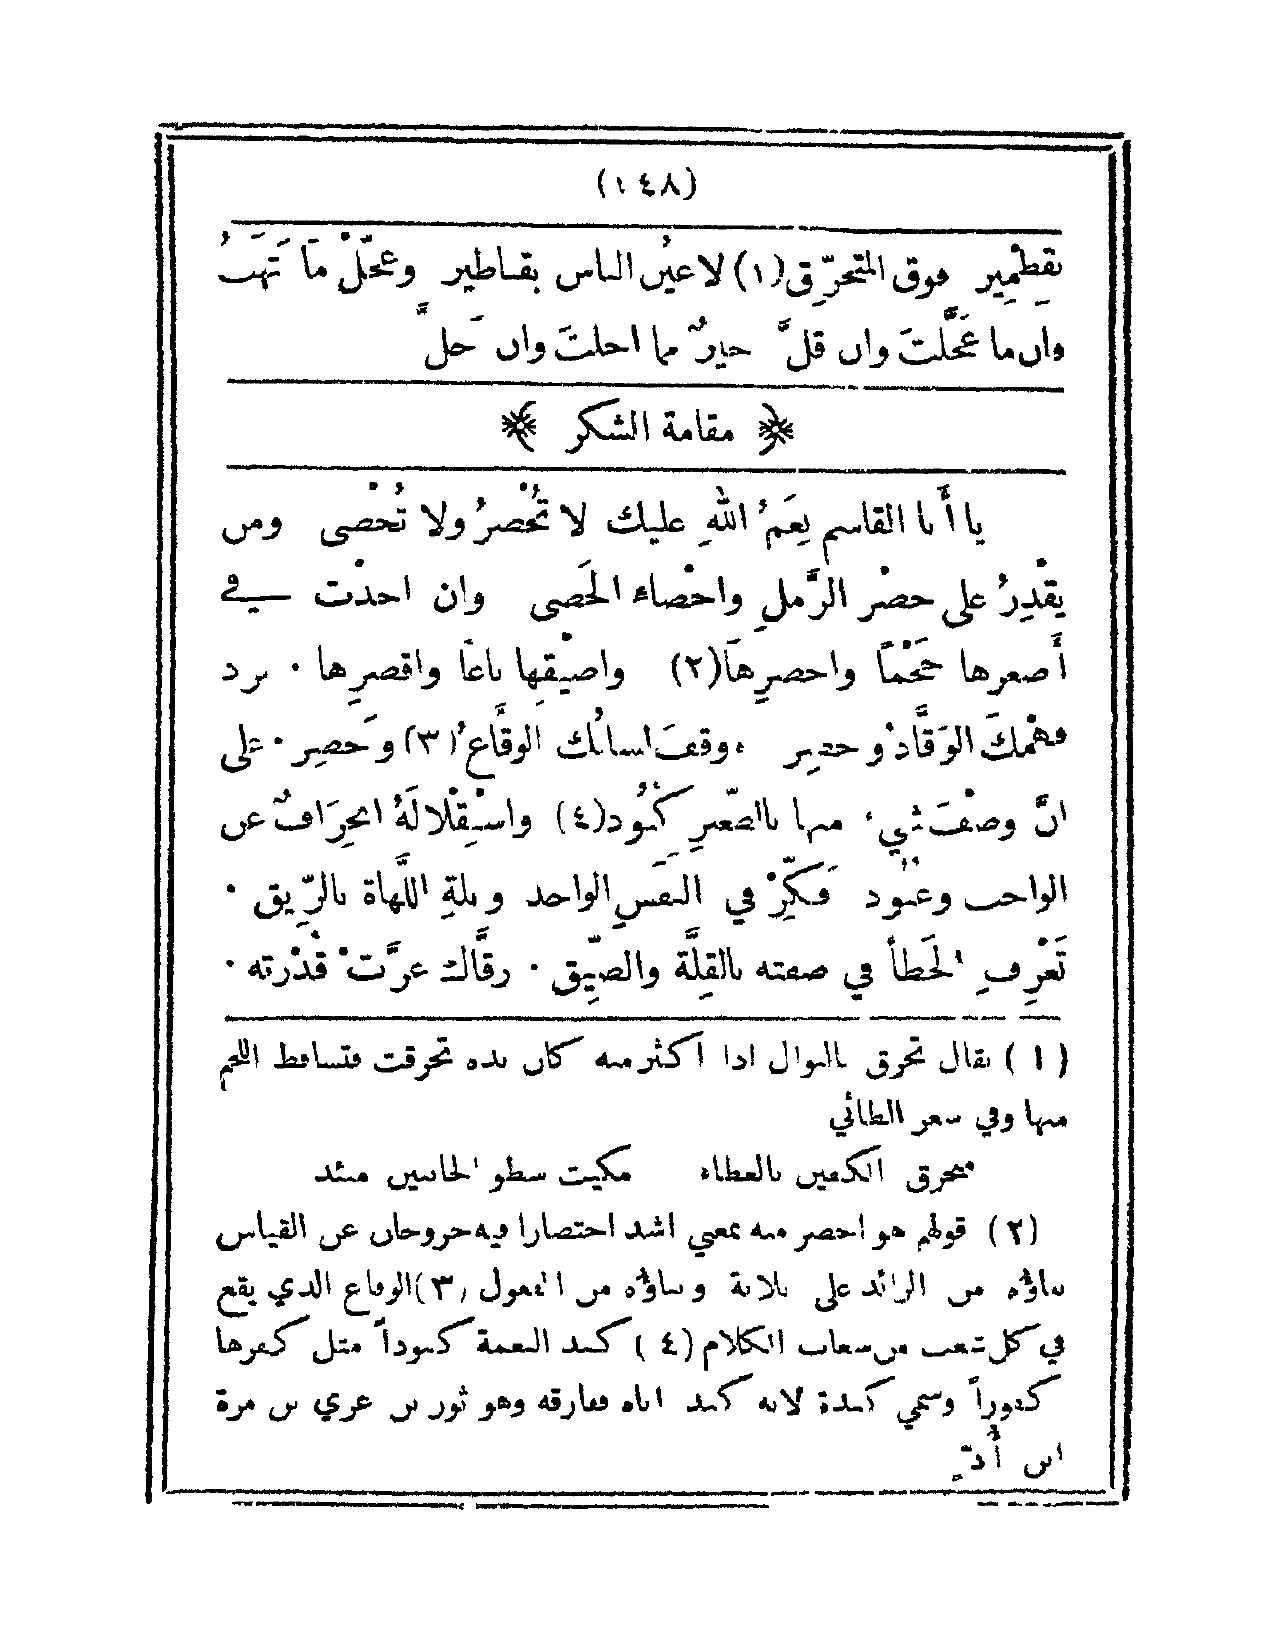 (١٤٨)
بقِطْمِير فوق المتحرِّقِ(١) لأعيُنِ الناس بقناطير وعجِّلْ مَا تَهَبُ
وان ما عَجَّلتَ وان قلَّ خيرٌ مما اجلتَ وان جَلَّ
﴿ مقامة الشكر ﴾
يا أبا القاسم نِعَمُ اللهِ عليك لا تُحْصرُ ولا تُحْصى ومن
يقْدِرُ على حصْر الرَّملِ واحْصاء الحَصى وان اخذْت في
أصعرها حَجْمًا واحصرِهَا(٢) واضْيقِها باعًا واقصرِها · برد
فهْمكَ الوَقَّادُ وحسِر ووقفَ لسانُك الوقَّاعُ(٣) وَحصِر · على
انَّ وصْفَ شيء منها بالصِّعرِ كُنُود(٤) واسْتِقْلالَهُ انحِرَافٌ عن
الواجب وعنُود فَكِّرْ في النفَسِ الواحد وبلةِ اللَّهاة بالرِّيق ·
تَعْرِفِ الخَطأَ في صفته بالقِلَّة والضِّيق · رقَّاك عزَّتْ قُدْرته ·
(١) يقال تحرق بالنوال اذا أكثر منه كان يده تحرقت فتساقط اللحم
منها وفي شعر الطائي
متحرق الكفين بالعطاء مكيت سطو الجانبين مئد
(٢) قولهم هو احصر منه بمعنى اشد اختصارا فيه خروجان عن القياس
بناؤه من الزائد على ثلاثة وبناؤه من المفعول (٣) الوقاع الذي يقع
في كل شعب من شعاب الكلام (٤) كند النعمة كنوداً مثل كفرها
كفوراً وسمي كندة لانه كند اباه ففارقه وهو ثور بن عري بن مرة
ابن أدد